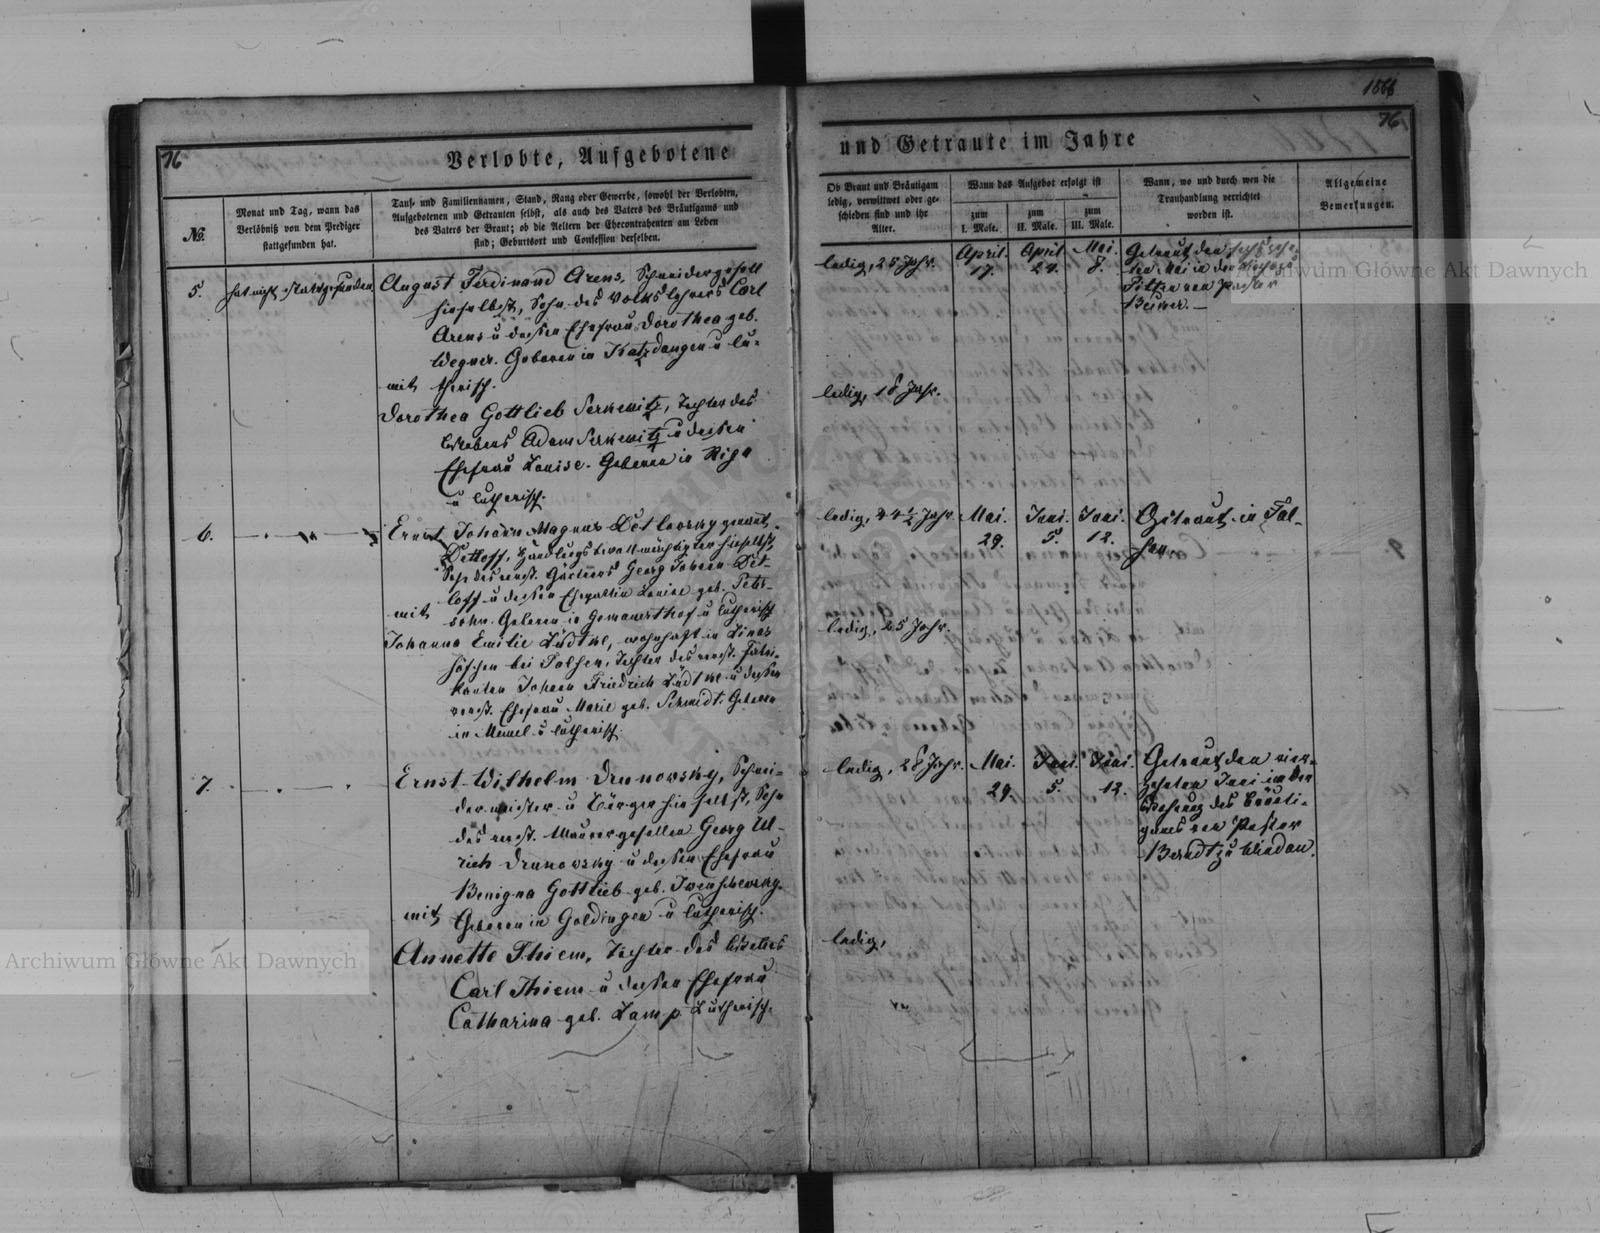 1866
76
76.
Verlobte, Aufgebotene
und Getraute im Jahre
№.
Monat und Tag, wann das
Verlöbniß von dem Prediger
stattgefunden hat.
Tauf- und Familiennamen, Stand, Rang oder Gewerbe, sowohl der Verlobten,
Aufgebotenen und Getrauten selbst, als auch des Vaters des Bräutigams und
des Vaters der Braut; ob die Aeltern der Ehecontrahenten am Leben
sind; Geburtsort und Confession derselben.
Ob Braut und Bräutigam
ledig, verwittwet oder ge-
schieden sind und ihr
Alter.
Wann das Aufgebot erfolgt ist
zum
I. Male.
zum
II. Male.
zum
III. Male.
Wann, wo und durch wen die
Trauhandlung verrichtet
worden ist.
Allgemeine
Bemerkungen.
5.
hat nicht stattgefunden
August Ferdinand Arens, Schneidergesell
hieselbst, Sohn des Volkslehrers Carl
Arens u dessen Ehefrau Dorothea geb.
Wegner. Geboren in Katzdangen u lu-
mit therisch.
Dorothea Gottlieb Serkewitz, Tochter des
Adam Serkewitz u dessen
Ehefrau Louise. Geboren in Riga
u lutherisch.
ledig, 25 Jahr.
April.
17.
April
24.
Mai.
8.
Getraut den
Mai in der
von Pastor
ledig, 18 Jahr.
6.
Ernst Johann Magnus Detlowsky genannt
Detloff, hieselbst,
Sohn des verst. Gärtners Georg Johann Det-
loff u dessen Ehegattin Louise geb. Peter-
mit sohn. Geboren in u lutherisch
Johanna Emilie Lüdtke, wohnhaft in
höfchen bei Talsen, Tochter des verst. Fabri-
kanten Johann Friedrich Lüdtke u dessen
verst. Ehefrau Marie geb. Schmidt. Geboren
in Memel u lutherisch.
ledig, 44½ Jahr.
Mai.
29.
Juni.
5.
Juni.
12.
Getraut in Tal-
sen.
ledig, 25 Jahr.
7.
Ernst Wilhelm Drunowsky, Schnei-
dermeister u Bürger hieselbst, Sohn
des verst. Maurergesellen Georg Ul-
rich Drunowsky u dessen Ehefrau
Benigna Gottlieb geb.
mit Geboren in Goldingen u lutherisch.
Annette Thiem, Tochter des
Carl Thiem u dessen Ehefrau
Catharina geb. Lamp. Lutherisch.
ledig, 28 Jahr.
Mai.
29.
Juni.
5.
Juni.
12.
Getraut den vier-
zehnten Juni in der
Wohnung des Bräuti-
gams von Pastor
Berndt zu Windau.
ledig,
Archiwum Główne Akt Dawnych
Archiwum Główne Akt Dawnych